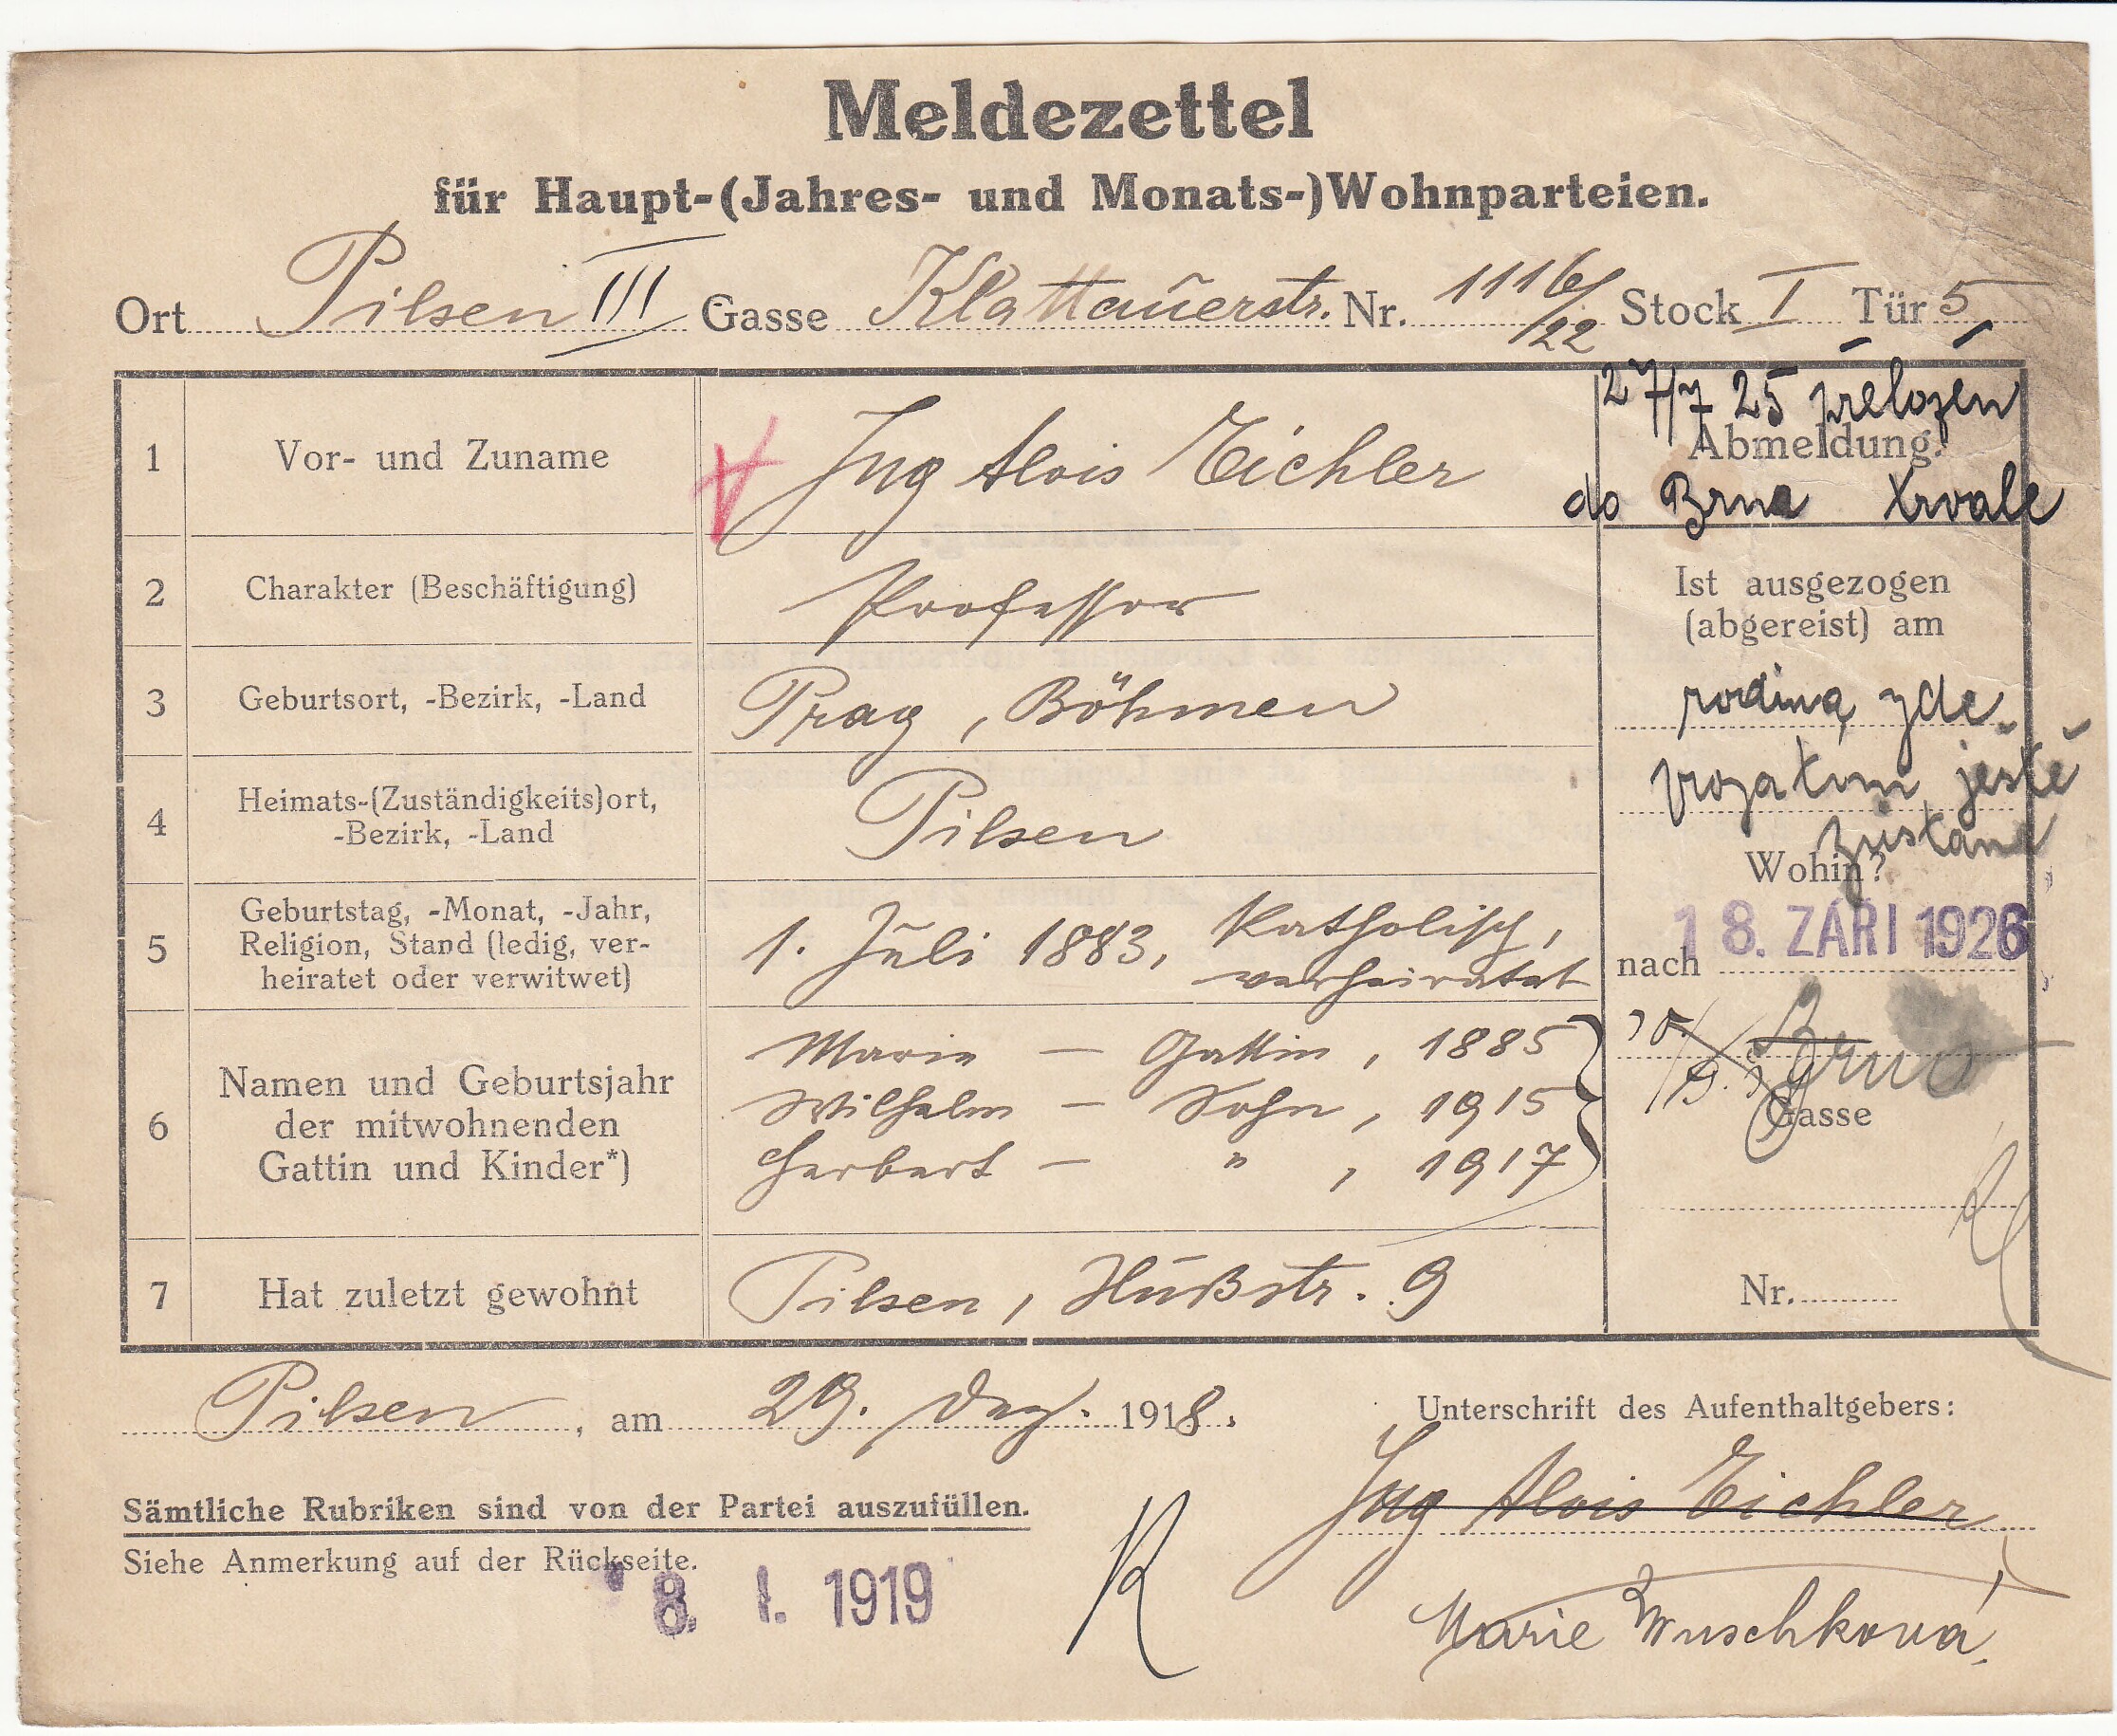 Meldezettel
für Haupt-(Jahres- und Monats-)Wohnparteien.
Ort Pilsen III Gasse Klattauerstr. Nr. 1116/22 Stock I Tür 5
27/7 25 přeložen
1 Vor- und Zuname Ing Alois Eichler Abmeldung.
do Brna trvale
2 Charakter (Beschäftigung) Professor Ist ausgezogen
(abgereist) am
3 Geburtsort, -Bezirk, -Land Prag, Böhmen rodina zde
prozatím ještě
4 Heimats-(Zuständigkeits)ort,
-Bezirk, -Land Pilsen
zůstane
Wohin?
5 Geburtstag, -Monat, -Jahr,
Religion, Stand (ledig, ver-
heiratet oder verwitwet) 1. Juli 1883, Katholisch,
verheiratet
18. ZÁŘI 1926
nach
6 Namen und Geburtsjahr
der mitwohnenden
Gattin und Kinder*)
Marie — Gattin, 1885
Wilhelm — Sohn, 1915
Herbert — " , 1917
Brno
Gasse
7 Hat zuletzt gewohnt Pilsen, Hußstr. 9 Nr.
Pilsen, am 29. Dez. 1918. Unterschrift des Aufenthaltgebers:
Ing Alois Eichler
Sämtliche Rubriken sind von der Partei auszufüllen.
Siehe Anmerkung auf der Rückseite.
8. I. 1919
Marie Wuschková